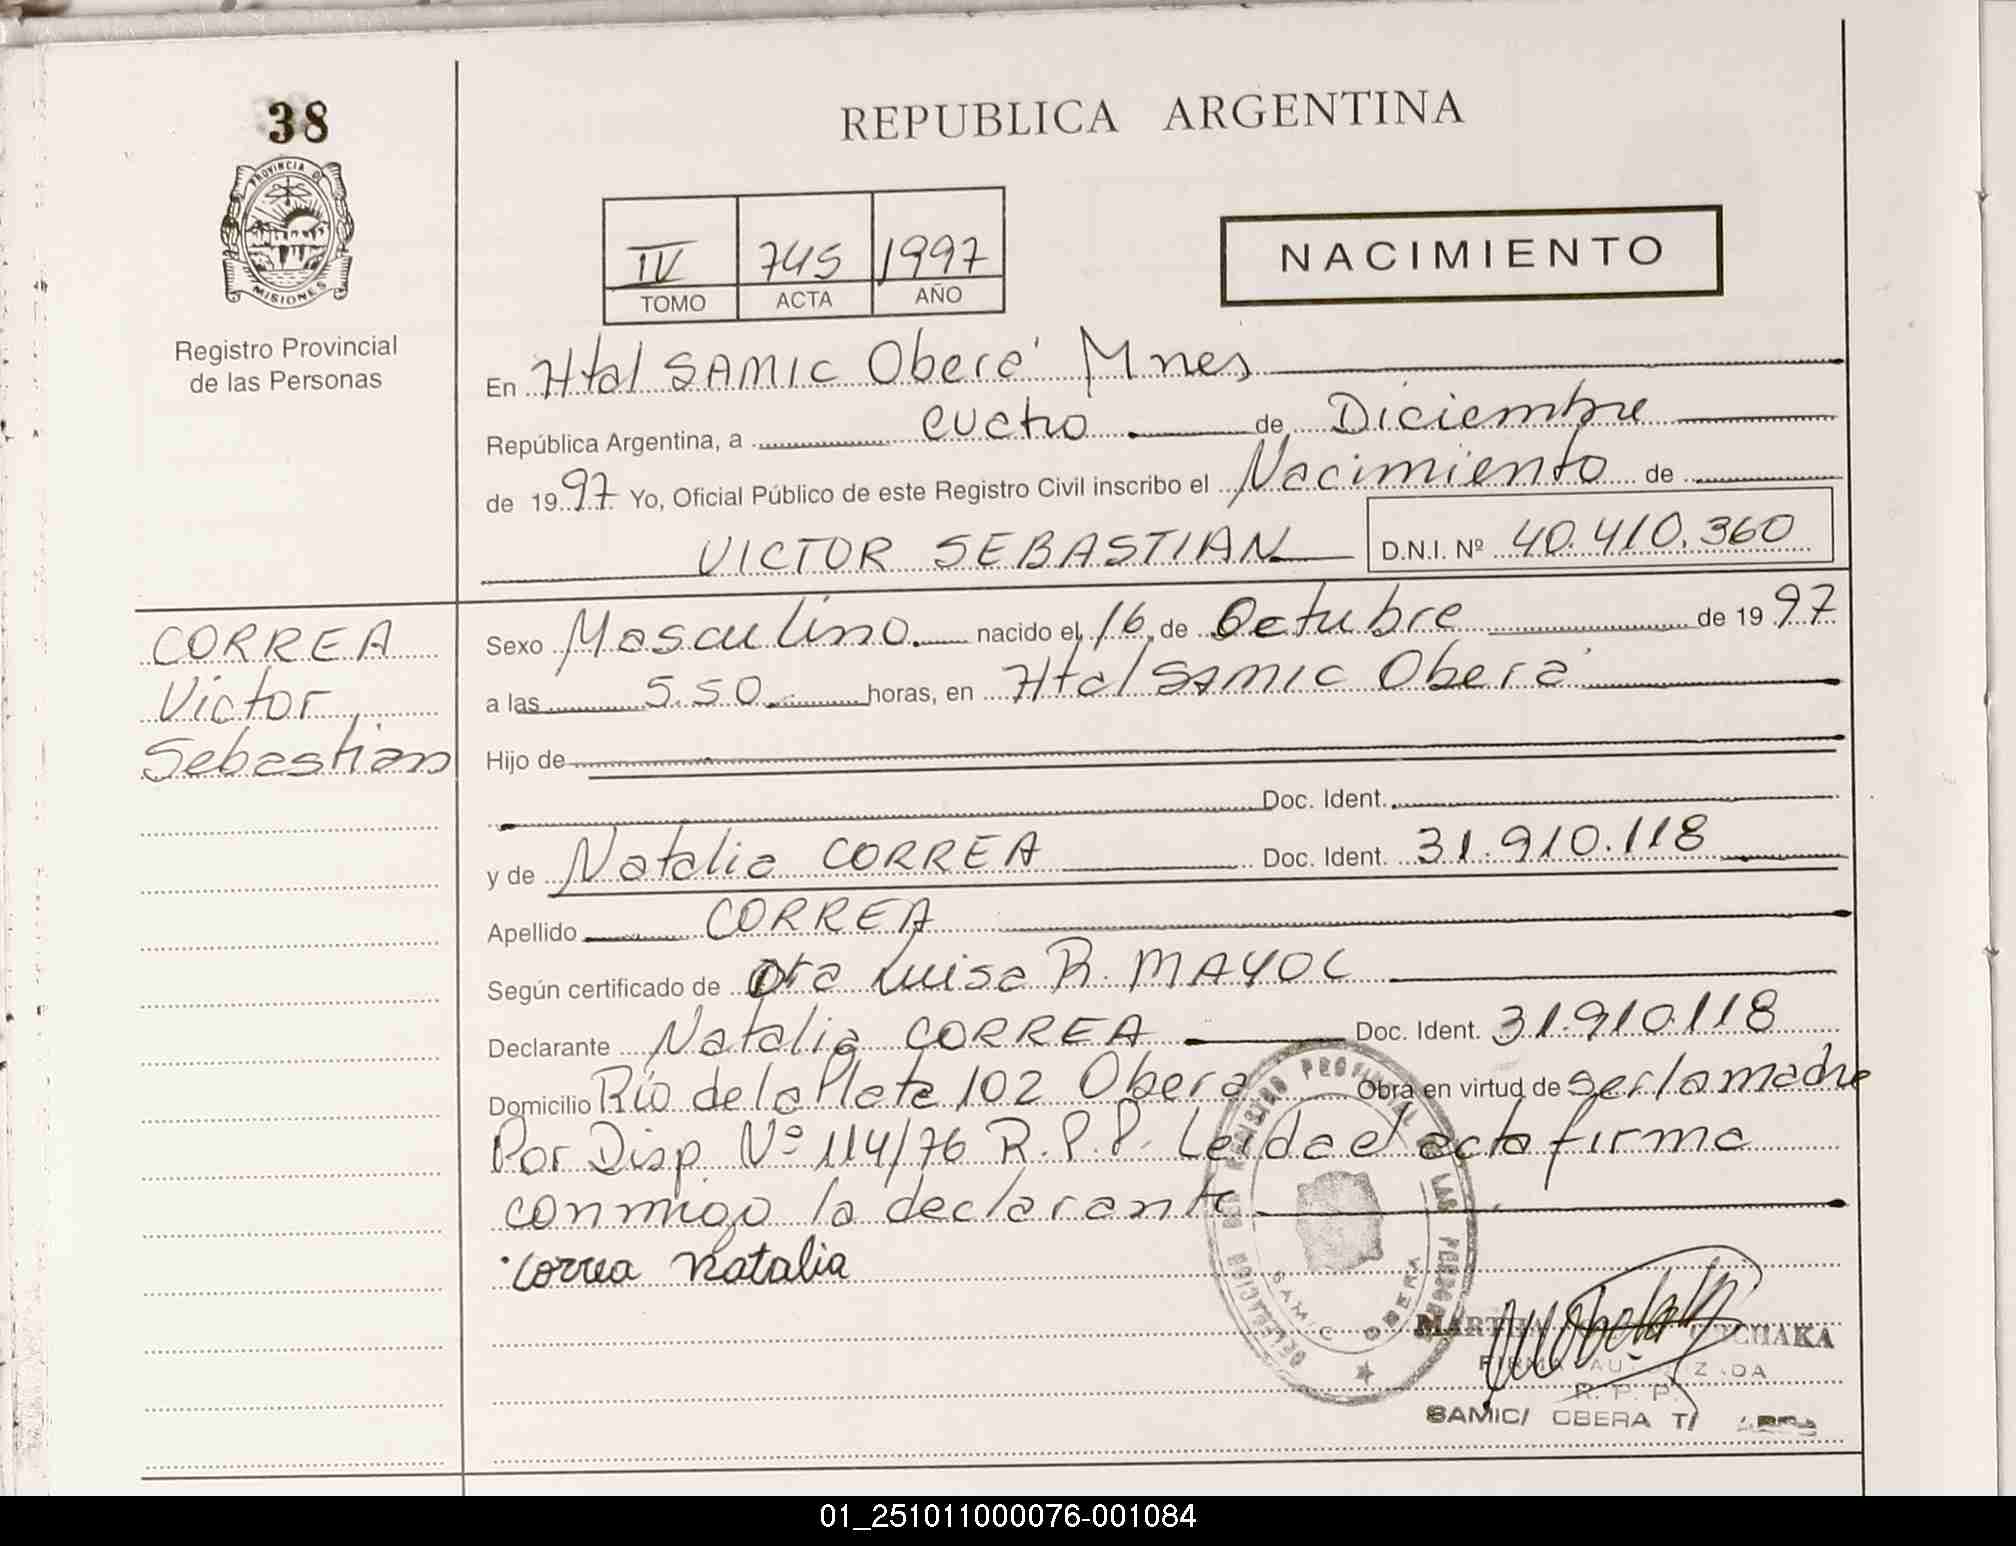 38
PROVINCIA DE
MISIONES
Registro Provincial
de las Personas
REPUBLICA ARGENTINA
IV 745 1997
TOMO ACTA AÑO
NACIMIENTO
En Htal SAMIC Oberá Mnes
República Argentina, a cuatro de Diciembre
de 1997 Yo, Oficial Público de este Registro Civil inscribo el Nacimiento de
VICTOR SEBASTIAN D.N.I. Nº 40.410.360
CORREA
Victor
Sebastian
Sexo Masculino nacido el 16 de Octubre de 1997
a las 5.50 horas, en Htal SAMIC Oberá
Hijo de
Doc. Ident.
y de Natalia CORREA Doc. Ident. 31.910.118
Apellido CORREA
Según certificado de Dra Luisa R. MAYOL
Declarante Natalia CORREA Doc. Ident. 31.910.118
Domicilio Río de la Plata 102 Obera Obra en virtud de ser la madre
Por Disp Nº 114/76 R.P.P. Leida el acta firma
conmigo la declarante
Correa Natalia
DELEGACION DEL REGISTRO PROVINCIAL DE LAS PERSONAS
SAMIC OBERA
FIRMA AUTORIZADA
R. P. P.
SAMIC/ OBERA T/
01_251011000076-001084